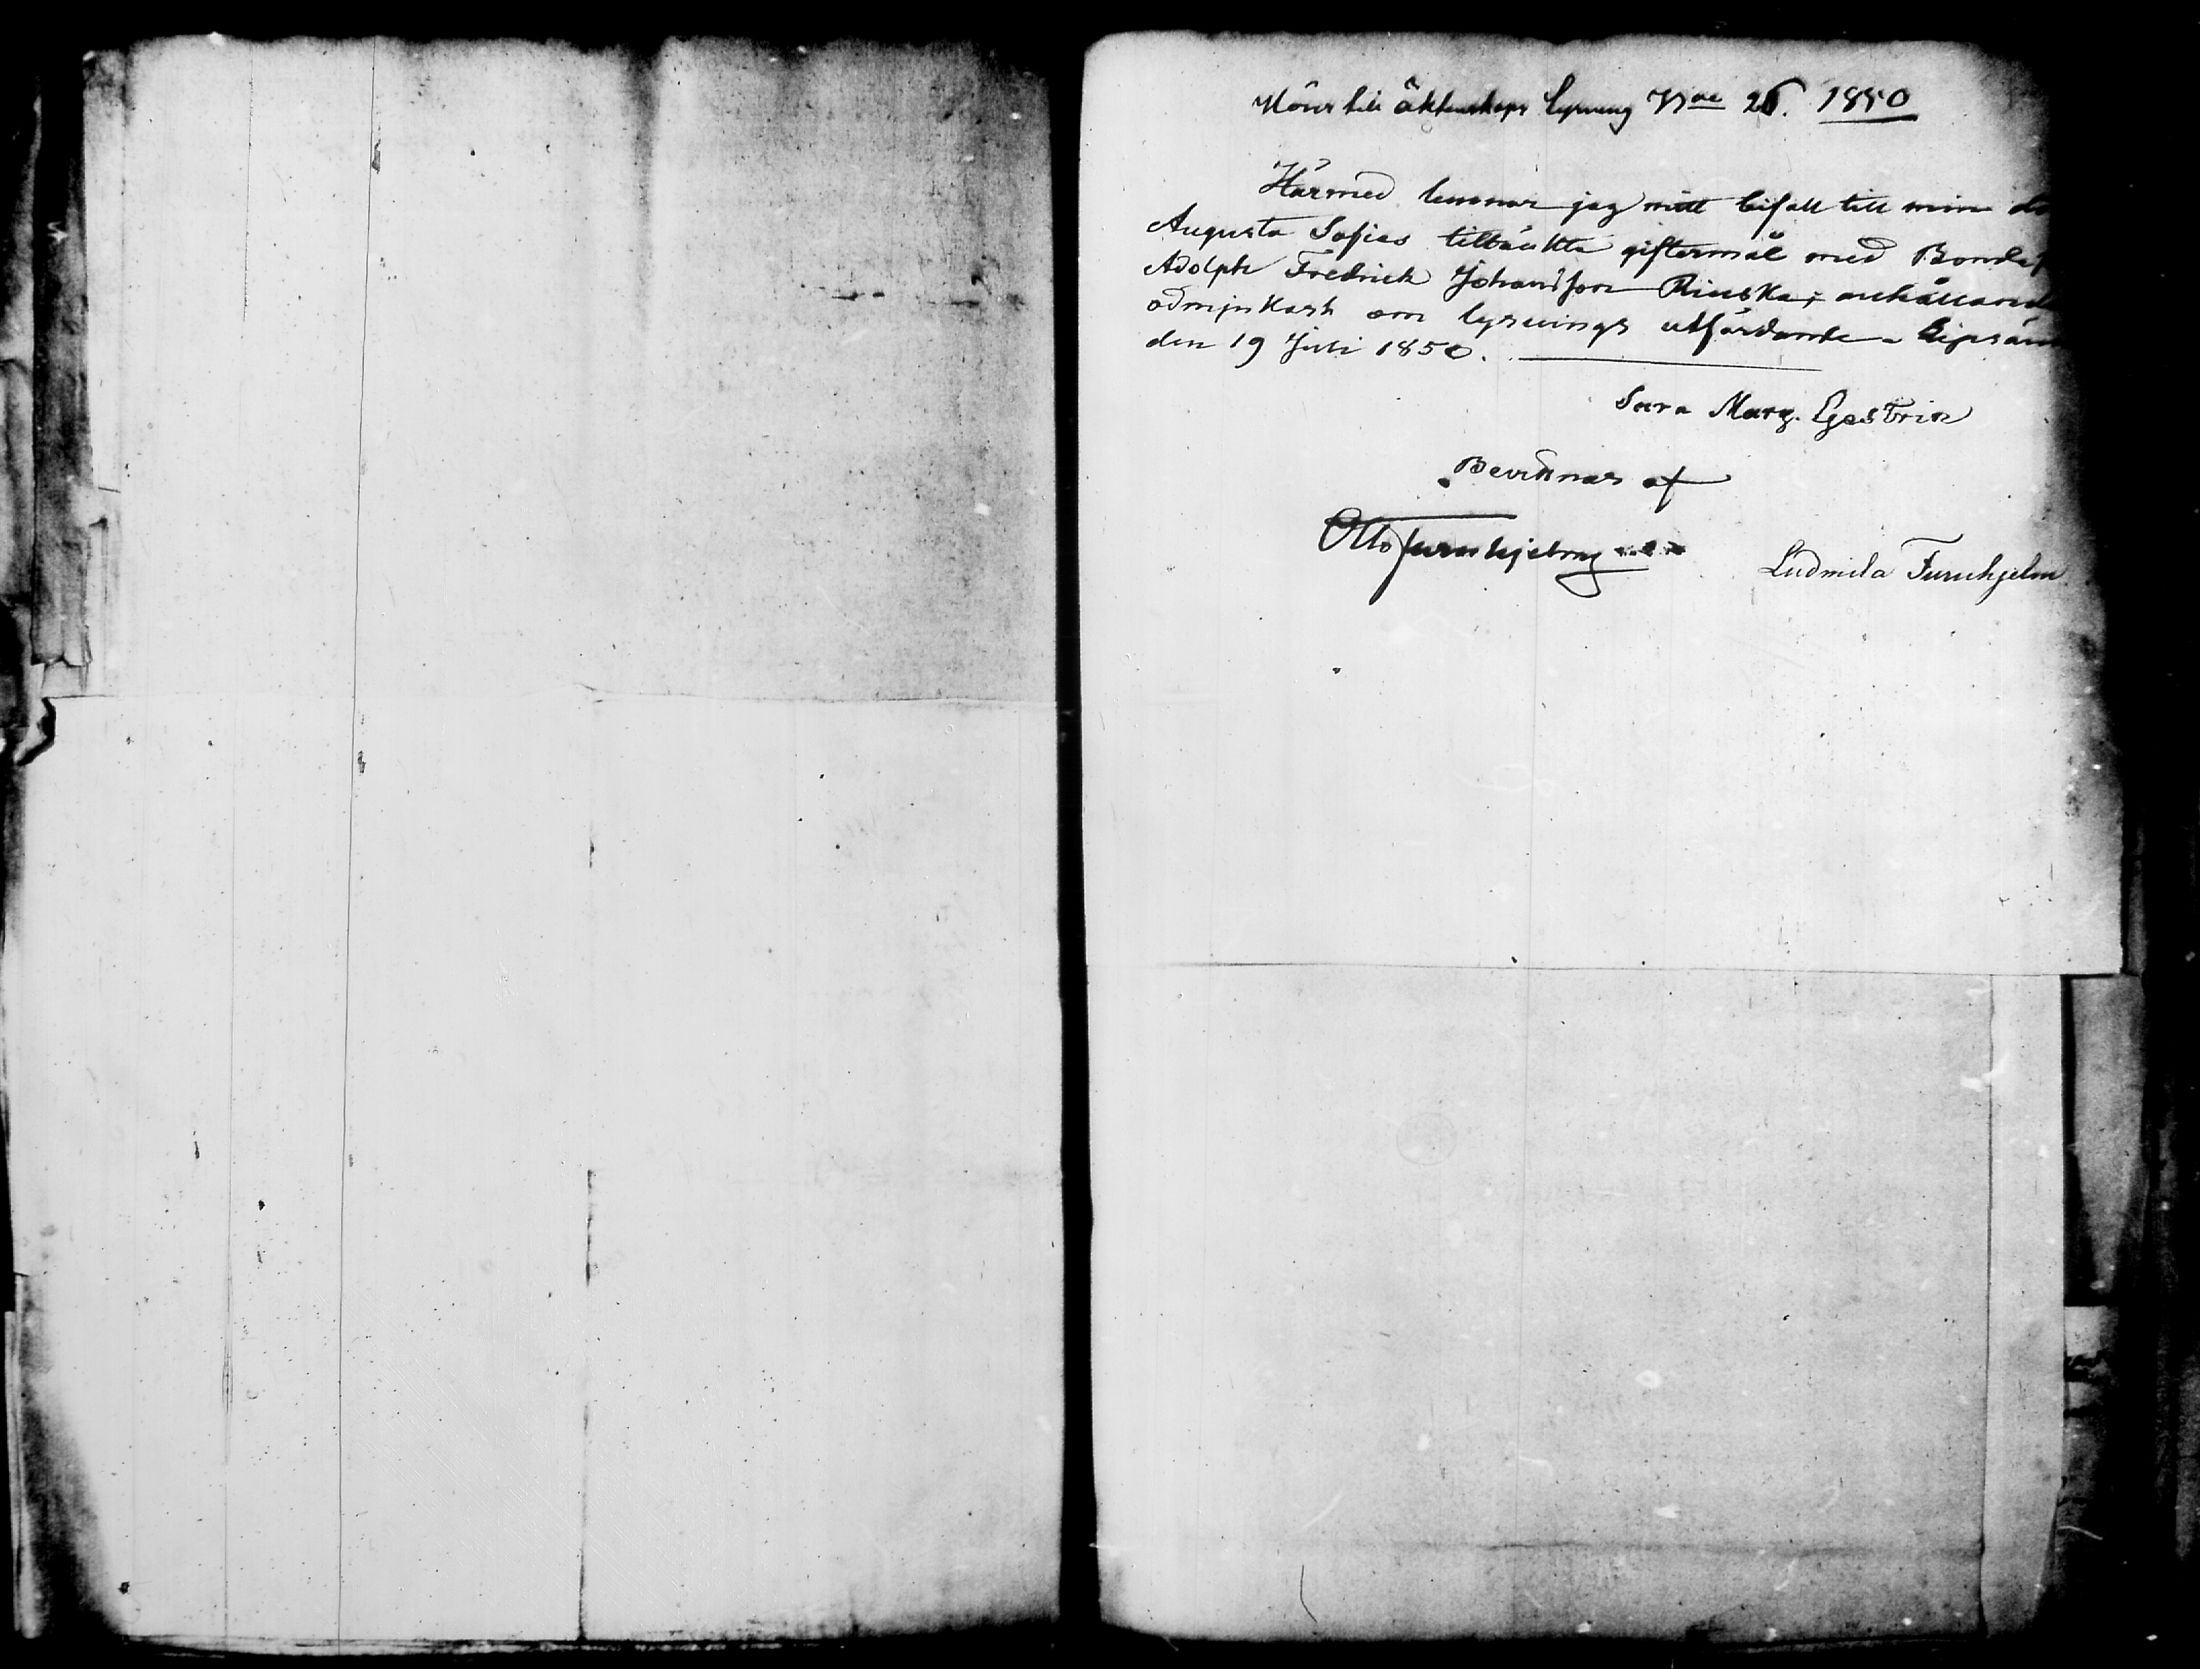 Hörer till äktenskaps lysning N:ro 26. 1850
Härmed lemnar jag mitt bifall till min do
Augusta Sofias tilltänkta giftermål med Bonde
Adolph Fredrick Johansson Rinska; anhållande
ödmjukast om lysnings utfärdande
den 19 Juli 1850.
Sara Marg. Gestrin
Bevittnas af
Otto Furuhjelm
Ludmila Furuhjelm